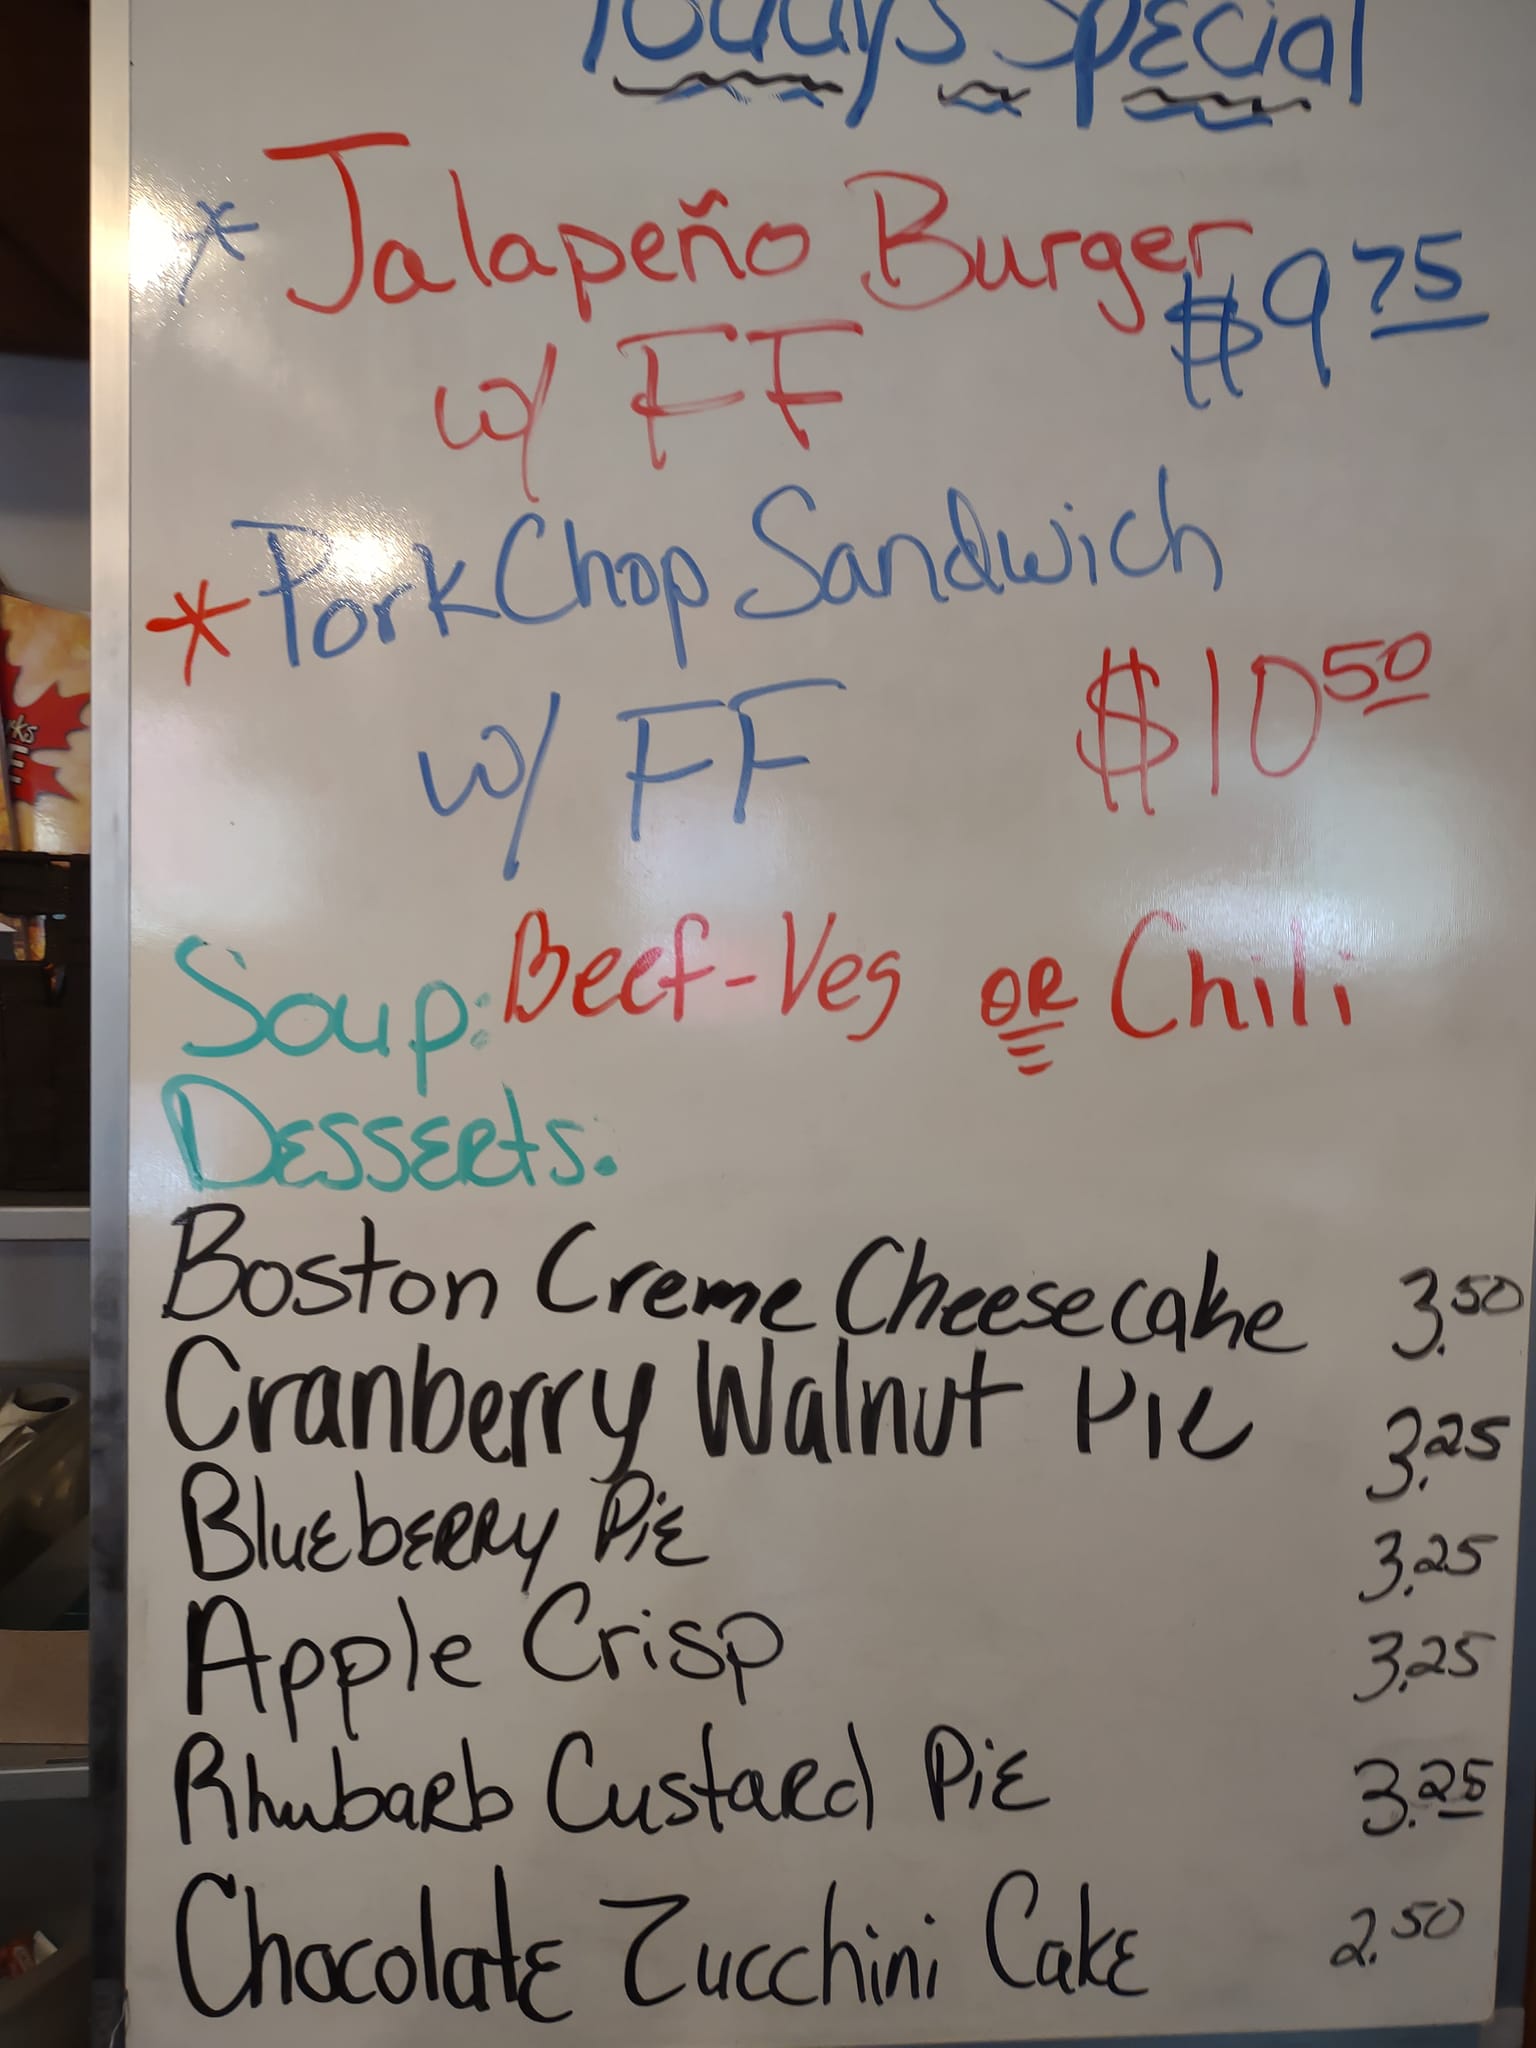 Todays Special
* Jalapeño Burger
w/ FF $9.75
* Pork Chop Sandwich
w/ FF $10.50
Soup: Beef-Veg OR Chili
Desserts:
Boston Creme Cheesecake 3.50
Cranberry Walnut Pie 3.25
Blueberry Pie 3.25
Apple Crisp 3.25
Rhubarb Custard Pie 3.25
Chocolate Zucchini Cake 2.50